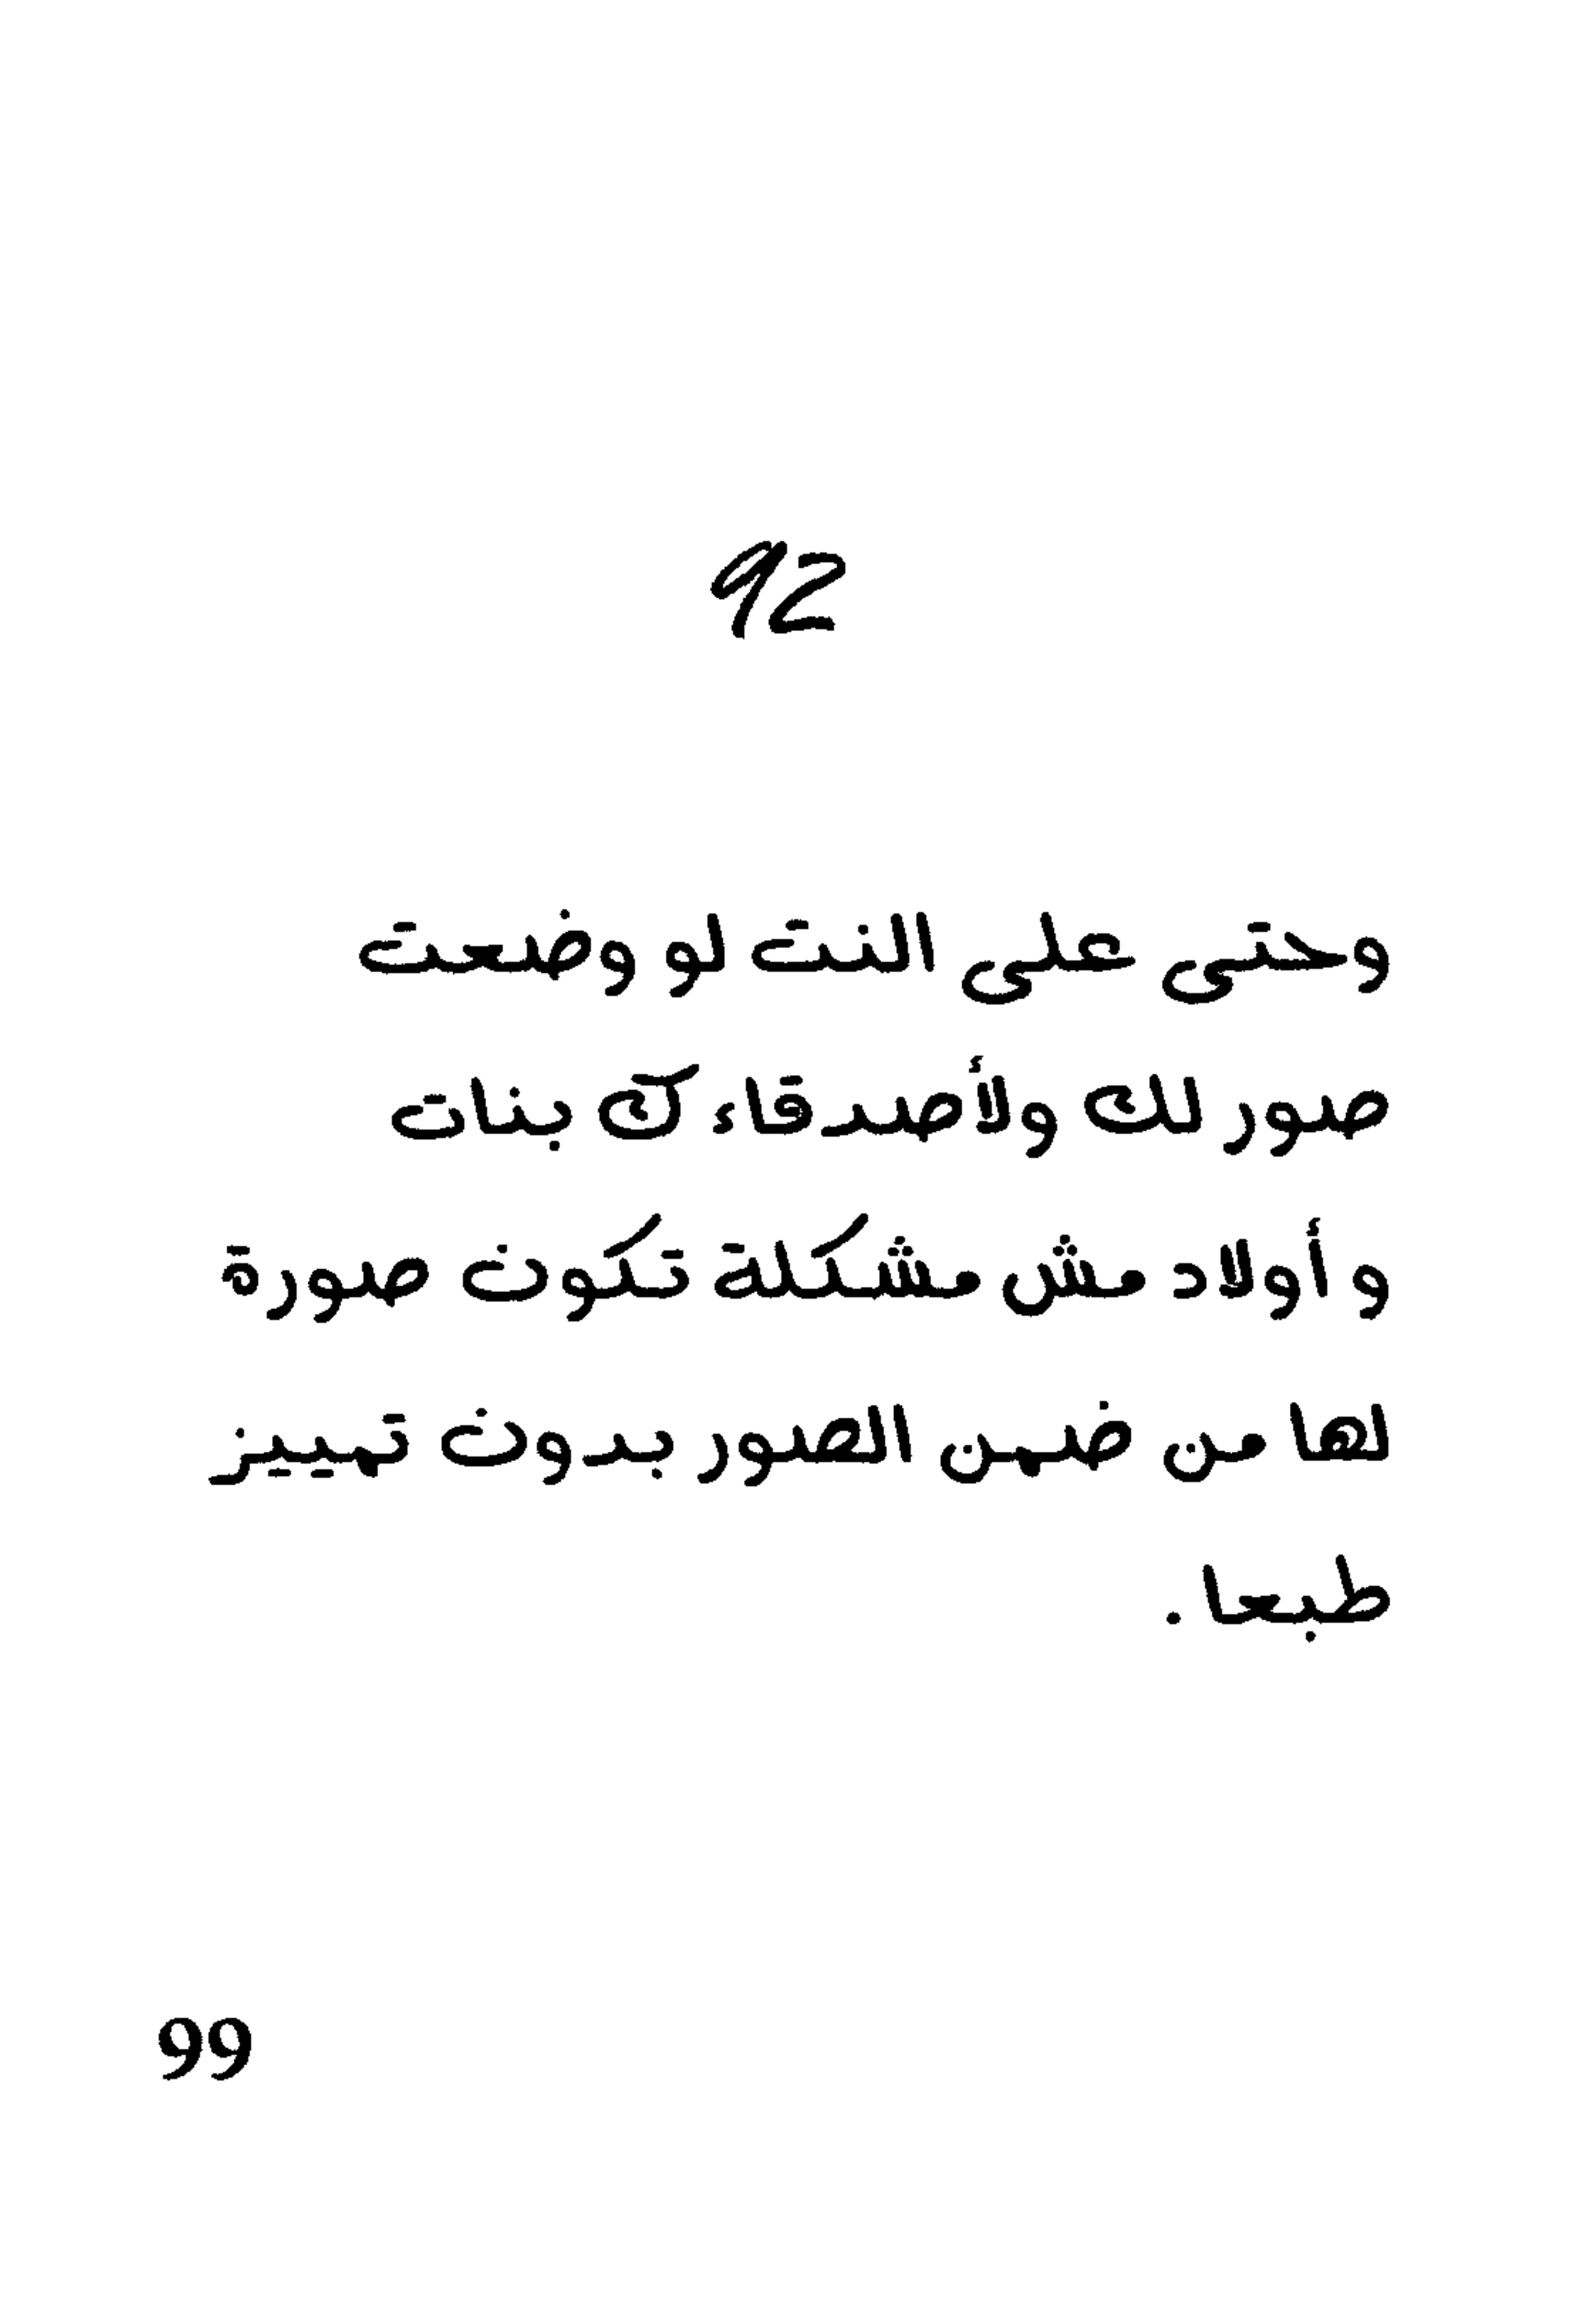 92
وحتى على النت لو وضعت
صور لك ولأصدقاءك بنات
و أولاد مش مشكلة تكون صورة
لها من ضمن الصور بدون تمييز
طبعا.
99